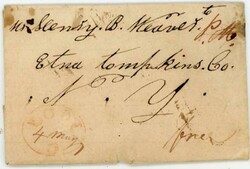 Mr Henry B. Weaver P.M.
Etna Tompkins. Co.
N. Y.
4 May
free